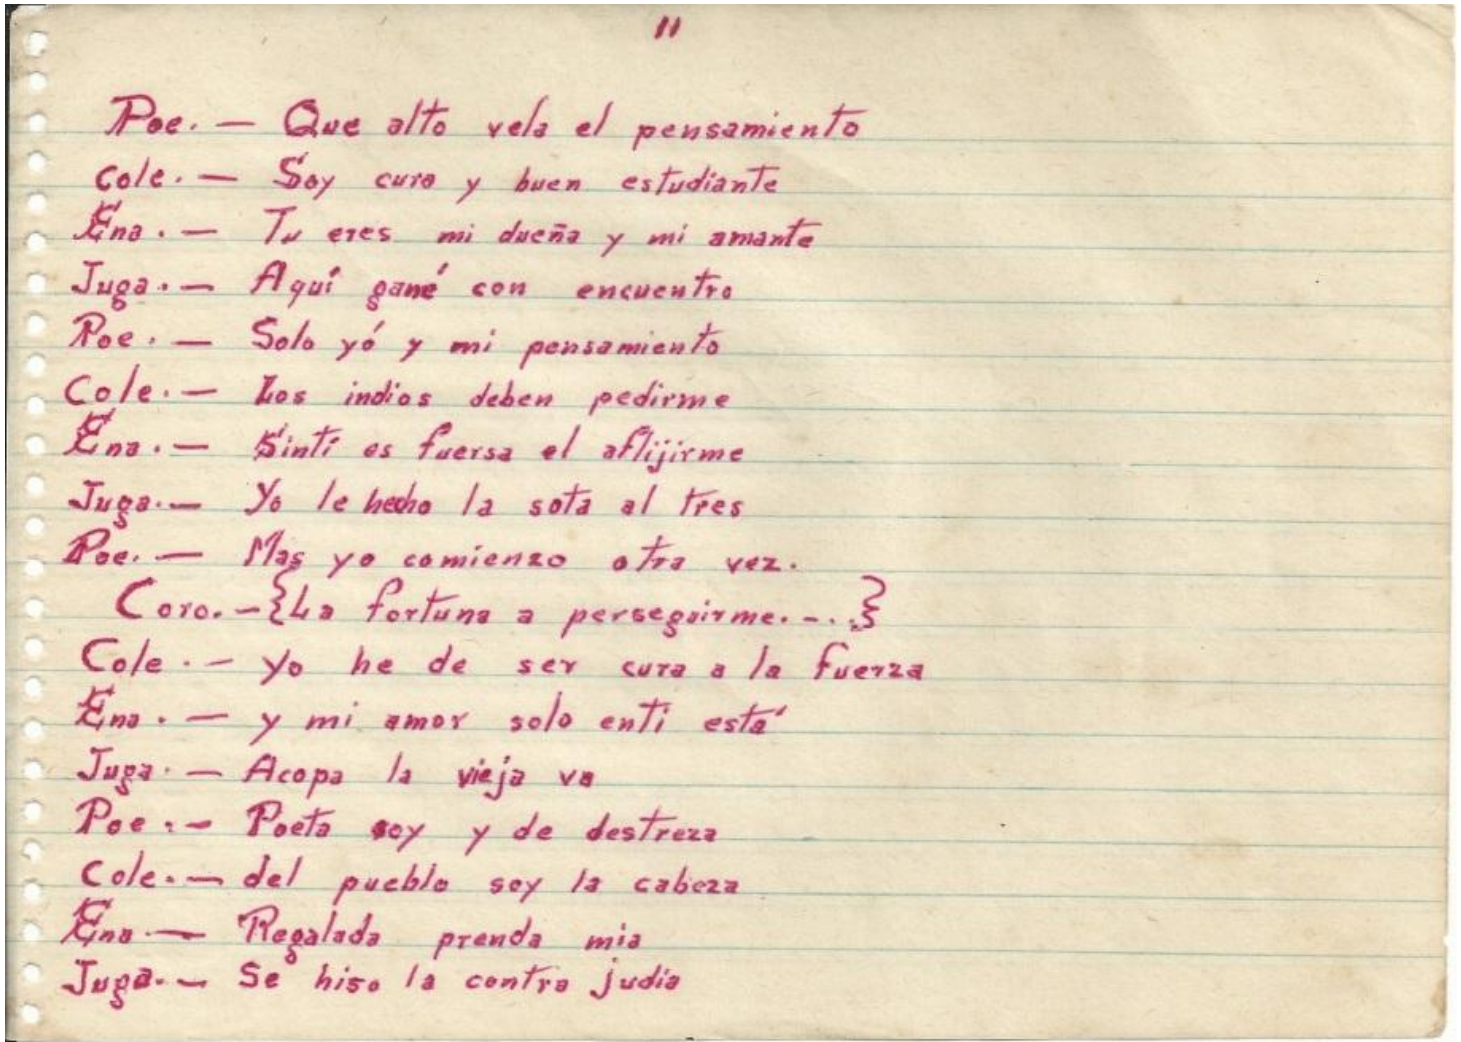 11
Poe. — Que alto vela el pensamiento
Cole. — Soy cura y buen estudiante
Ena. — Tu eres mi dueña y mi amante
Juga. — Aquí gané con encuentro
Poe. — Solo yó y mi pensamiento
Cole. — Los indios deben pedirme
Ena. — Sinti es fuersa el aflijirme
Juga. — Yo le hecho la sota al tres
Poe. — Mas yo comienzo otra vez.
Coro. — {La fortuna a perseguirme. -..}
Cole. — Yo he de ser cura a la fuerza
Ena. — y mi amor solo enti está
Juga. — Acopa la vieja va
Poe. — Poeta soy y de destreza
Cole. — del pueblo soy la cabeza
Ena — Regalada prenda mia
Juga. — Se hiso la contra judia